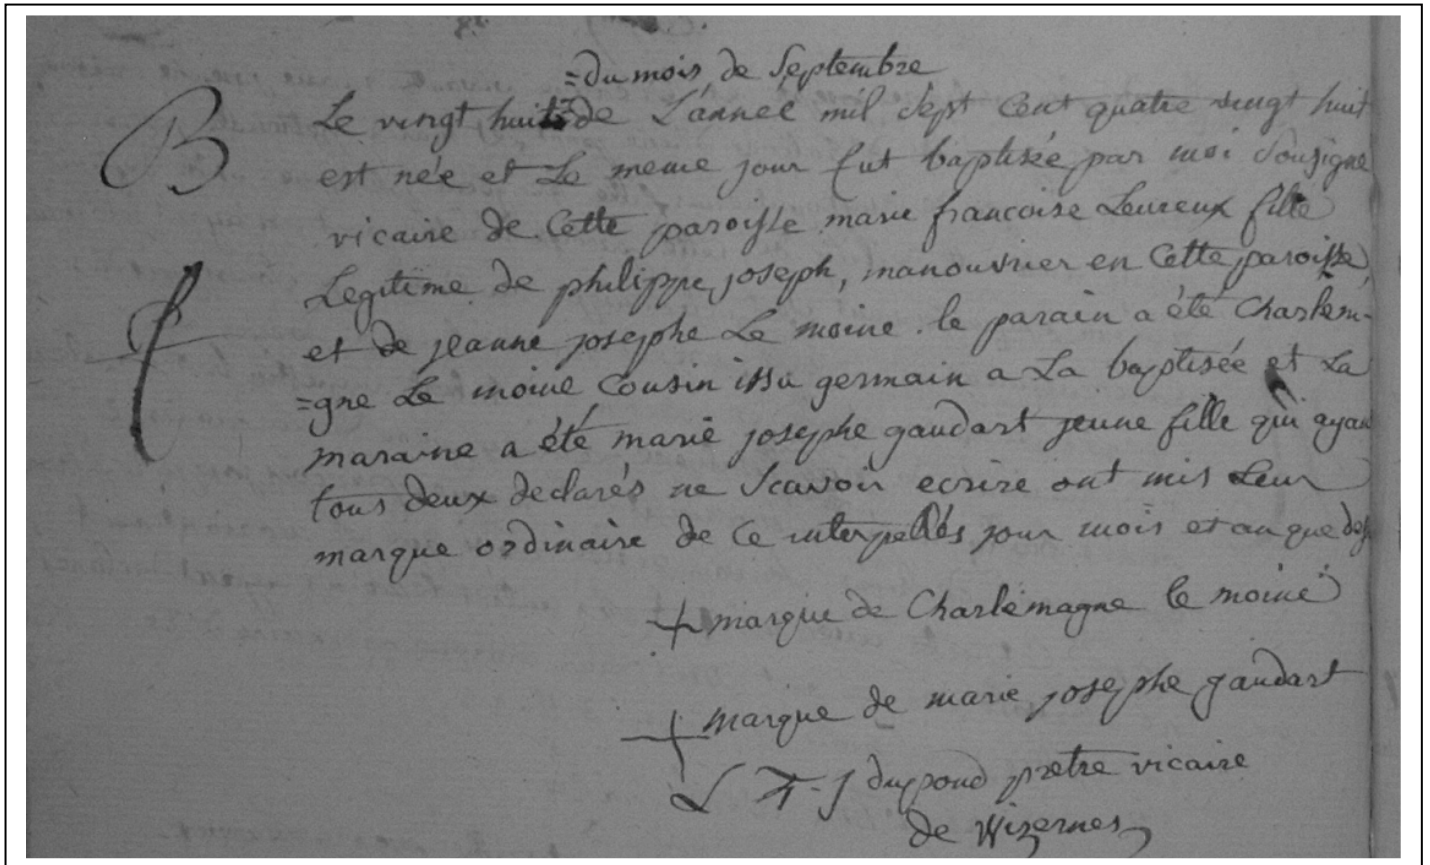 =du mois de Septembre
B
Le vingt huit=de L'année mil sept Cent quatre vingt huit
est née et Le meme jour fut baptisée par moi Sousigné
vicaire de Cette paroisse marie francoise Leureux fille
Legitime de philippe joseph, manouvrier en Cette paroisse
et de jeanne josephe Le moine. le parain a été Charlem-
=gne Le moine Cousin issu germain a La baptisée et La
maraine a été marie josephe gaudart jeune fille qui ayan
tous deux declarés ne Scavoir ecrire ont mis Leur
marque ordinaire de Ce interpellés jour mois et an que des
marque de Charlemagne le moine
marque de marie josephe gaudart
L F-J dupond pretre vicaire
de Wizernes